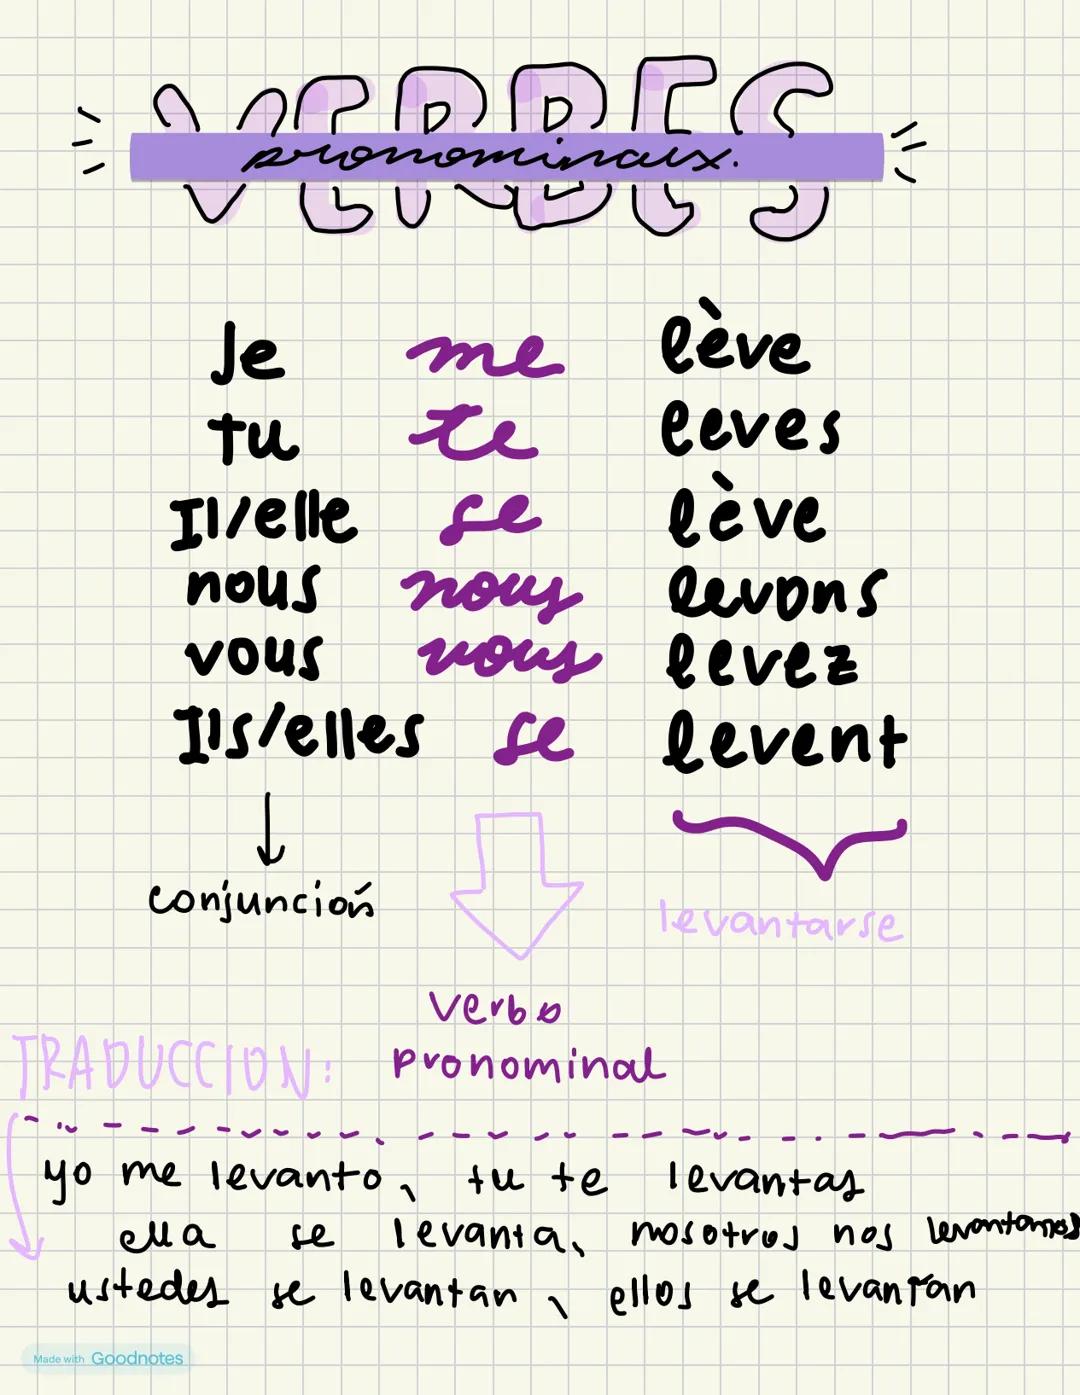 VERBES
pronominaux.
Je me lève
tu te leves
Il/elle se lève
nous nous levons
vous vous levez
Ils/elles se levent
conjunción
levantarse
verbo
TRADUCCION: pronominal
yo me levanto, tu te levantas
ella se levanta, nosotros nos levantamos
ustedes se levantan, ellos se levantan
Made with Goodnotes